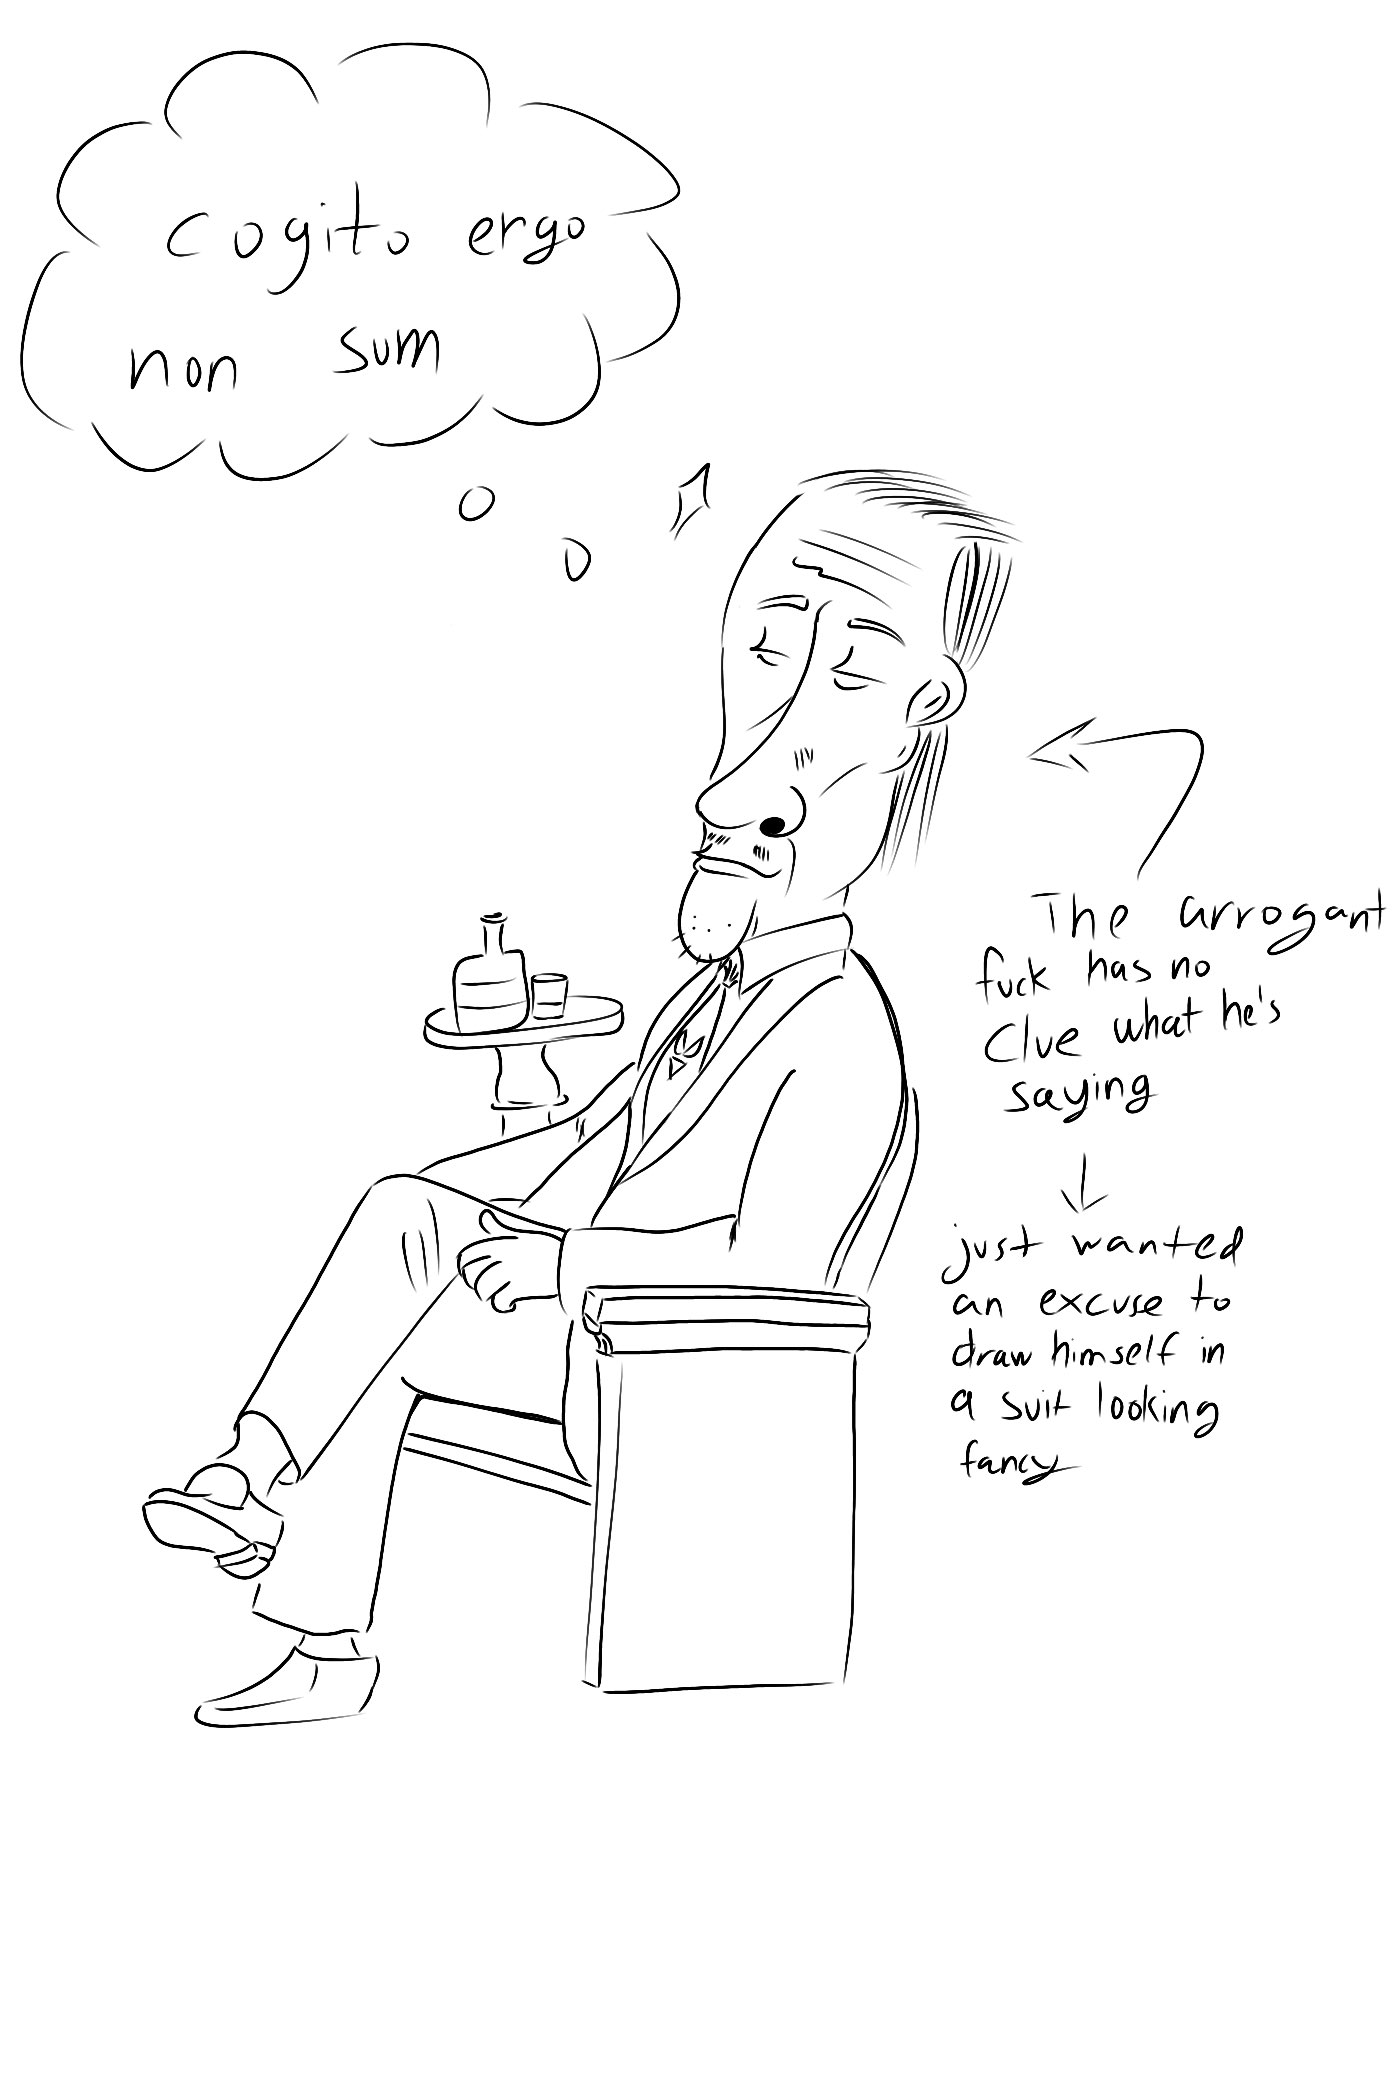 cogito ergo
non sum
The arrogant
fuck has no
Clue what he's
saying
just wanted
an excuse to
draw himself in
a suit looking
fancy